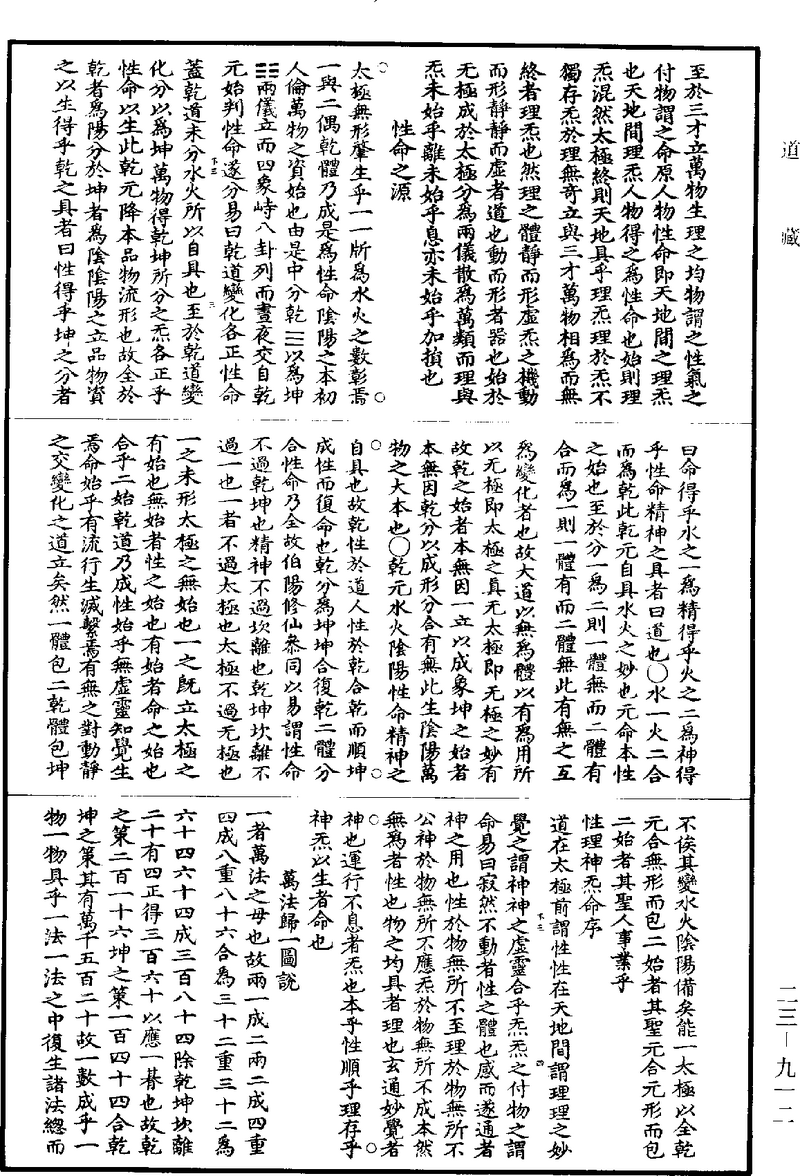 道藏
至於三才立萬物生理之均物謂之性氣之
付物謂之命原人物性命即天地間之理炁
也天地間理炁人物得之爲性命也始則理
炁混然太極終則天地具乎理炁理於炁不
獨存炁於理無奇立與三才萬物相爲而無
終者理炁也然理之體靜而形虛炁之機動
而形靜靜而虛者道也動而形者器也始於
无極成於太極分爲兩儀散爲萬類而理與
炁未始乎離未始乎息亦未始乎加損也
性命之源
太極無形肇生乎一一斯爲水火之數彰焉
一與二偶乾體乃成是爲性命陰陽之本初
人倫萬物之資始也由是中分乾☰以爲坤
☷兩儀立而四象峙八卦列而晝夜交自乾
元始判性命遂分易曰乾道變化各正性命
蓋乾道未分水火所以自具也至於乾道變
化分以爲坤萬物得乾坤所分之炁各正乎
性命以生此乾元降本品物流形也故全於
乾者爲陽分於坤者爲陰陰陽之立品物資
之以生得乎乾之具者曰性得乎坤之分者
曰命得乎水之一爲精得乎火之二爲神得
乎性命精神之具者曰道也○水一火二合
而爲乾此乾元自具水火之妙也元命本性
之始也至於分一爲二則一體無而二體有
合而爲一則一體有而二體無此有無之互
爲變化者也故大道以無爲體以有爲用所
以无極即太極之真无太極即无極之妙有
故乾之始者本無因一立以成象坤之始者
本無因乾分以成形分合有無此生陰陽萬
物之大本也○乾元水火陰陽性命精神之
自具也故乾性於道人性於乾合乾而順坤
成性而復命也乾分爲坤坤合復乾二體分
合性命乃全故伯陽修仙叅同以易謂性命
不過乾坤也精神不過坎離也乾坤坎離不
過一也一者不過太極也太極不過无極也
一之未形太極之無始也一之既立太極之
有始也無始者性之始也有始者命之始也
合乎二始乾道乃成性始乎無虛靈知覺生
焉命始乎有流行生滅繫焉有無之對動靜
之交變化之道立矣然一體包二乾體包坤
不俟其變水火陰陽備矣能一太極以全乾
元合無形而包二始者其聖元合元形而包
二始者其聖人事業乎
性理神炁命序
道在太極前謂性性在天地間謂理理之妙
覺之謂神神之虛靈合乎炁炁之付物之謂
命易曰寂然不動者性之體也感而遂通者
神之用也性於物無所不至理於物無所不
公神於物無所不應炁於物無所不成本然
無爲者性也物之均具者理也玄通妙覺者
神也運行不息者炁也本乎性順乎理存乎
神炁以生者命也
萬法歸一圖說
一者萬法之母也故兩一成二兩二成四重
四成八重八十六合爲三十二重三十二爲
六十四六十四成三百八十四除乾坤坎離
二十有四正得三百六十以應一朞也故乾
之策二百一十六坤之策一百四十四合乾
坤之策其有萬千五百二十故一數成乎一
物一物具乎一法一法之中復生諸法緫而
二三—九一二